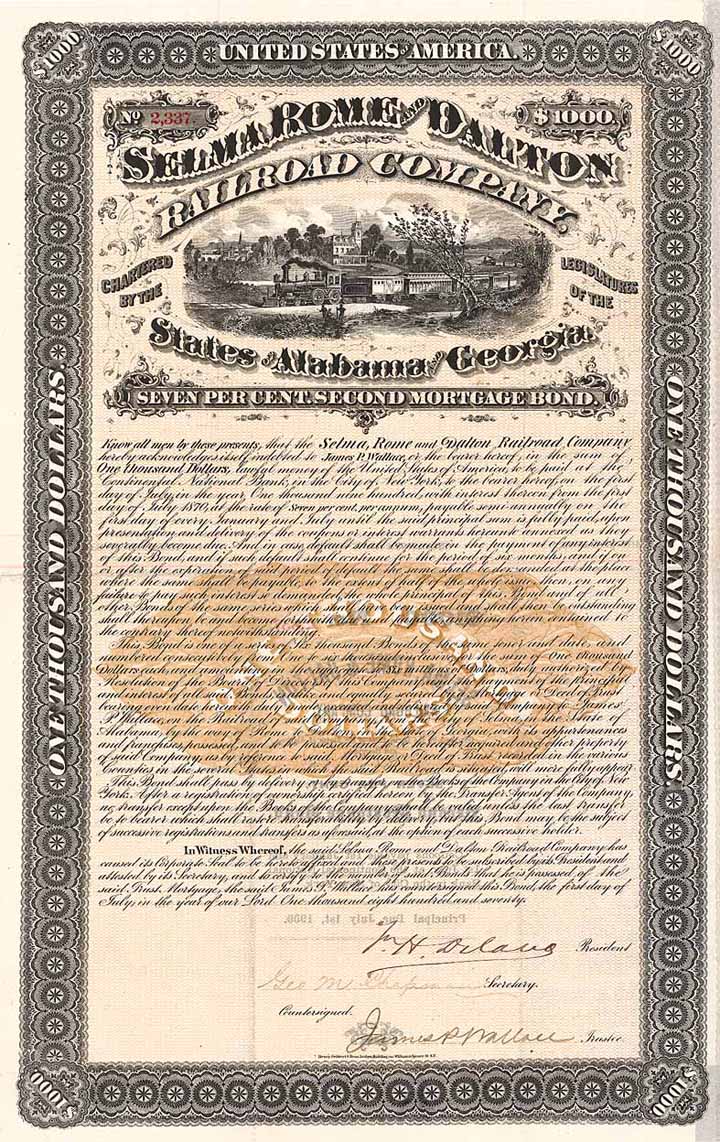 $1000
UNITED STATES OF AMERICA.
$1000
No 2,337.
$1000.
SELMA, ROME AND DALTON
RAILROAD COMPANY,
CHARTERED BY THE
LEGISLATURES OF THE
States OF Alabama AND Georgia.
SEVEN PER CENT. SECOND MORTGAGE BOND.
ONE THOUSAND DOLLARS.
ONE THOUSAND DOLLARS.
Know all men by these presents, that the Selma, Rome and Dalton Railroad Company
hereby acknowledges itself indebted to James P. Wallace, or the bearer hereof, in the sum of
One thousand Dollars, lawful money of the United States of America, to be paid at the
Continental National Bank, in the City of New York, to the bearer hereof, on the first
day of July, in the year, One thousand nine hundred, with interest thereon from the first
day of July 1870, at the rate of Seven per cent. per annum, payable semi-annually on the
first day of every January and July until the said principal sum is fully paid, upon
presentation and delivery of the coupons or interest warrants hereunto annexed as they
severally become due. And in case default shall be made in the payment of any interest
of this Bond, and if such default shall continue for the period of six months and if on
or after the expiration of said period of default the same shall be demanded at the place
where the same shall be payable to the extent of half of the whole issue, then, on any
failure to pay such interest so demanded, the whole principal of this Bond and of all
other Bonds of the same series which shall have been issued and shall then be outstanding
shall thereupon be and become forthwith due and payable, anything herein contained to
the contrary thereof notwithstanding.
This Bond is one of a series of Six thousand Bonds of the same tenor and date, and
numbered consecutively from one to six thousand inclusive for the sum of One thousand
Dollars each, and amounting in the aggregate to Six millions of Dollars, duly authorized by
Resolution of the Board of Directors of said Company and the payment of the principal
and interest of all said Bonds is alike and equally secured by a Mortgage or Deed of Trust
bearing even date herewith duly executed and delivered by said Company to James
P. Wallace, on the Railroad of said Company from the City of Selma in the State of
Alabama, by the way of Rome to Dalton in the State of Georgia, with its appurtenances
and franchises, possessed, and to be possessed and to be hereafter acquired and other property
of said Company, as by reference to said Mortgage or Deed of Trust recorded in the various
Counties in the several States in which the said Railroad is situated, will more fully appear.
This Bond shall pass by delivery or by transfer on the Books of the Company in the City of New
York. After a registration of ownership certified hereon by the Transfer Agent of the Company,
no transfer except upon the Books of the Company shall be valid, unless the last transfer
be to bearer which shall restore transferability by delivery. This Bond may be the subject
of successive registrations and transfers as aforesaid, at the option of each successive holder.
In Witness Whereof, the said Selma Rome and Dalton Railroad Company has
caused its Corporate Seal to be hereto affixed and these presents to be subscribed by its President and
attested by its Secretary, and to certify to the number of said Bonds that he is possessed of the
said Trust Mortgage, the said James P. Wallace has countersigned this Bond, the first day of
July, in the year of our Lord One thousand eight hundred and seventy.
ONE THOUSAND
DOLLARS
Principal Due July 1st, 1900.
President
Geo M. Chapman Secretary.
Countersigned.
James P Wallace Trustee
$1000
$1000